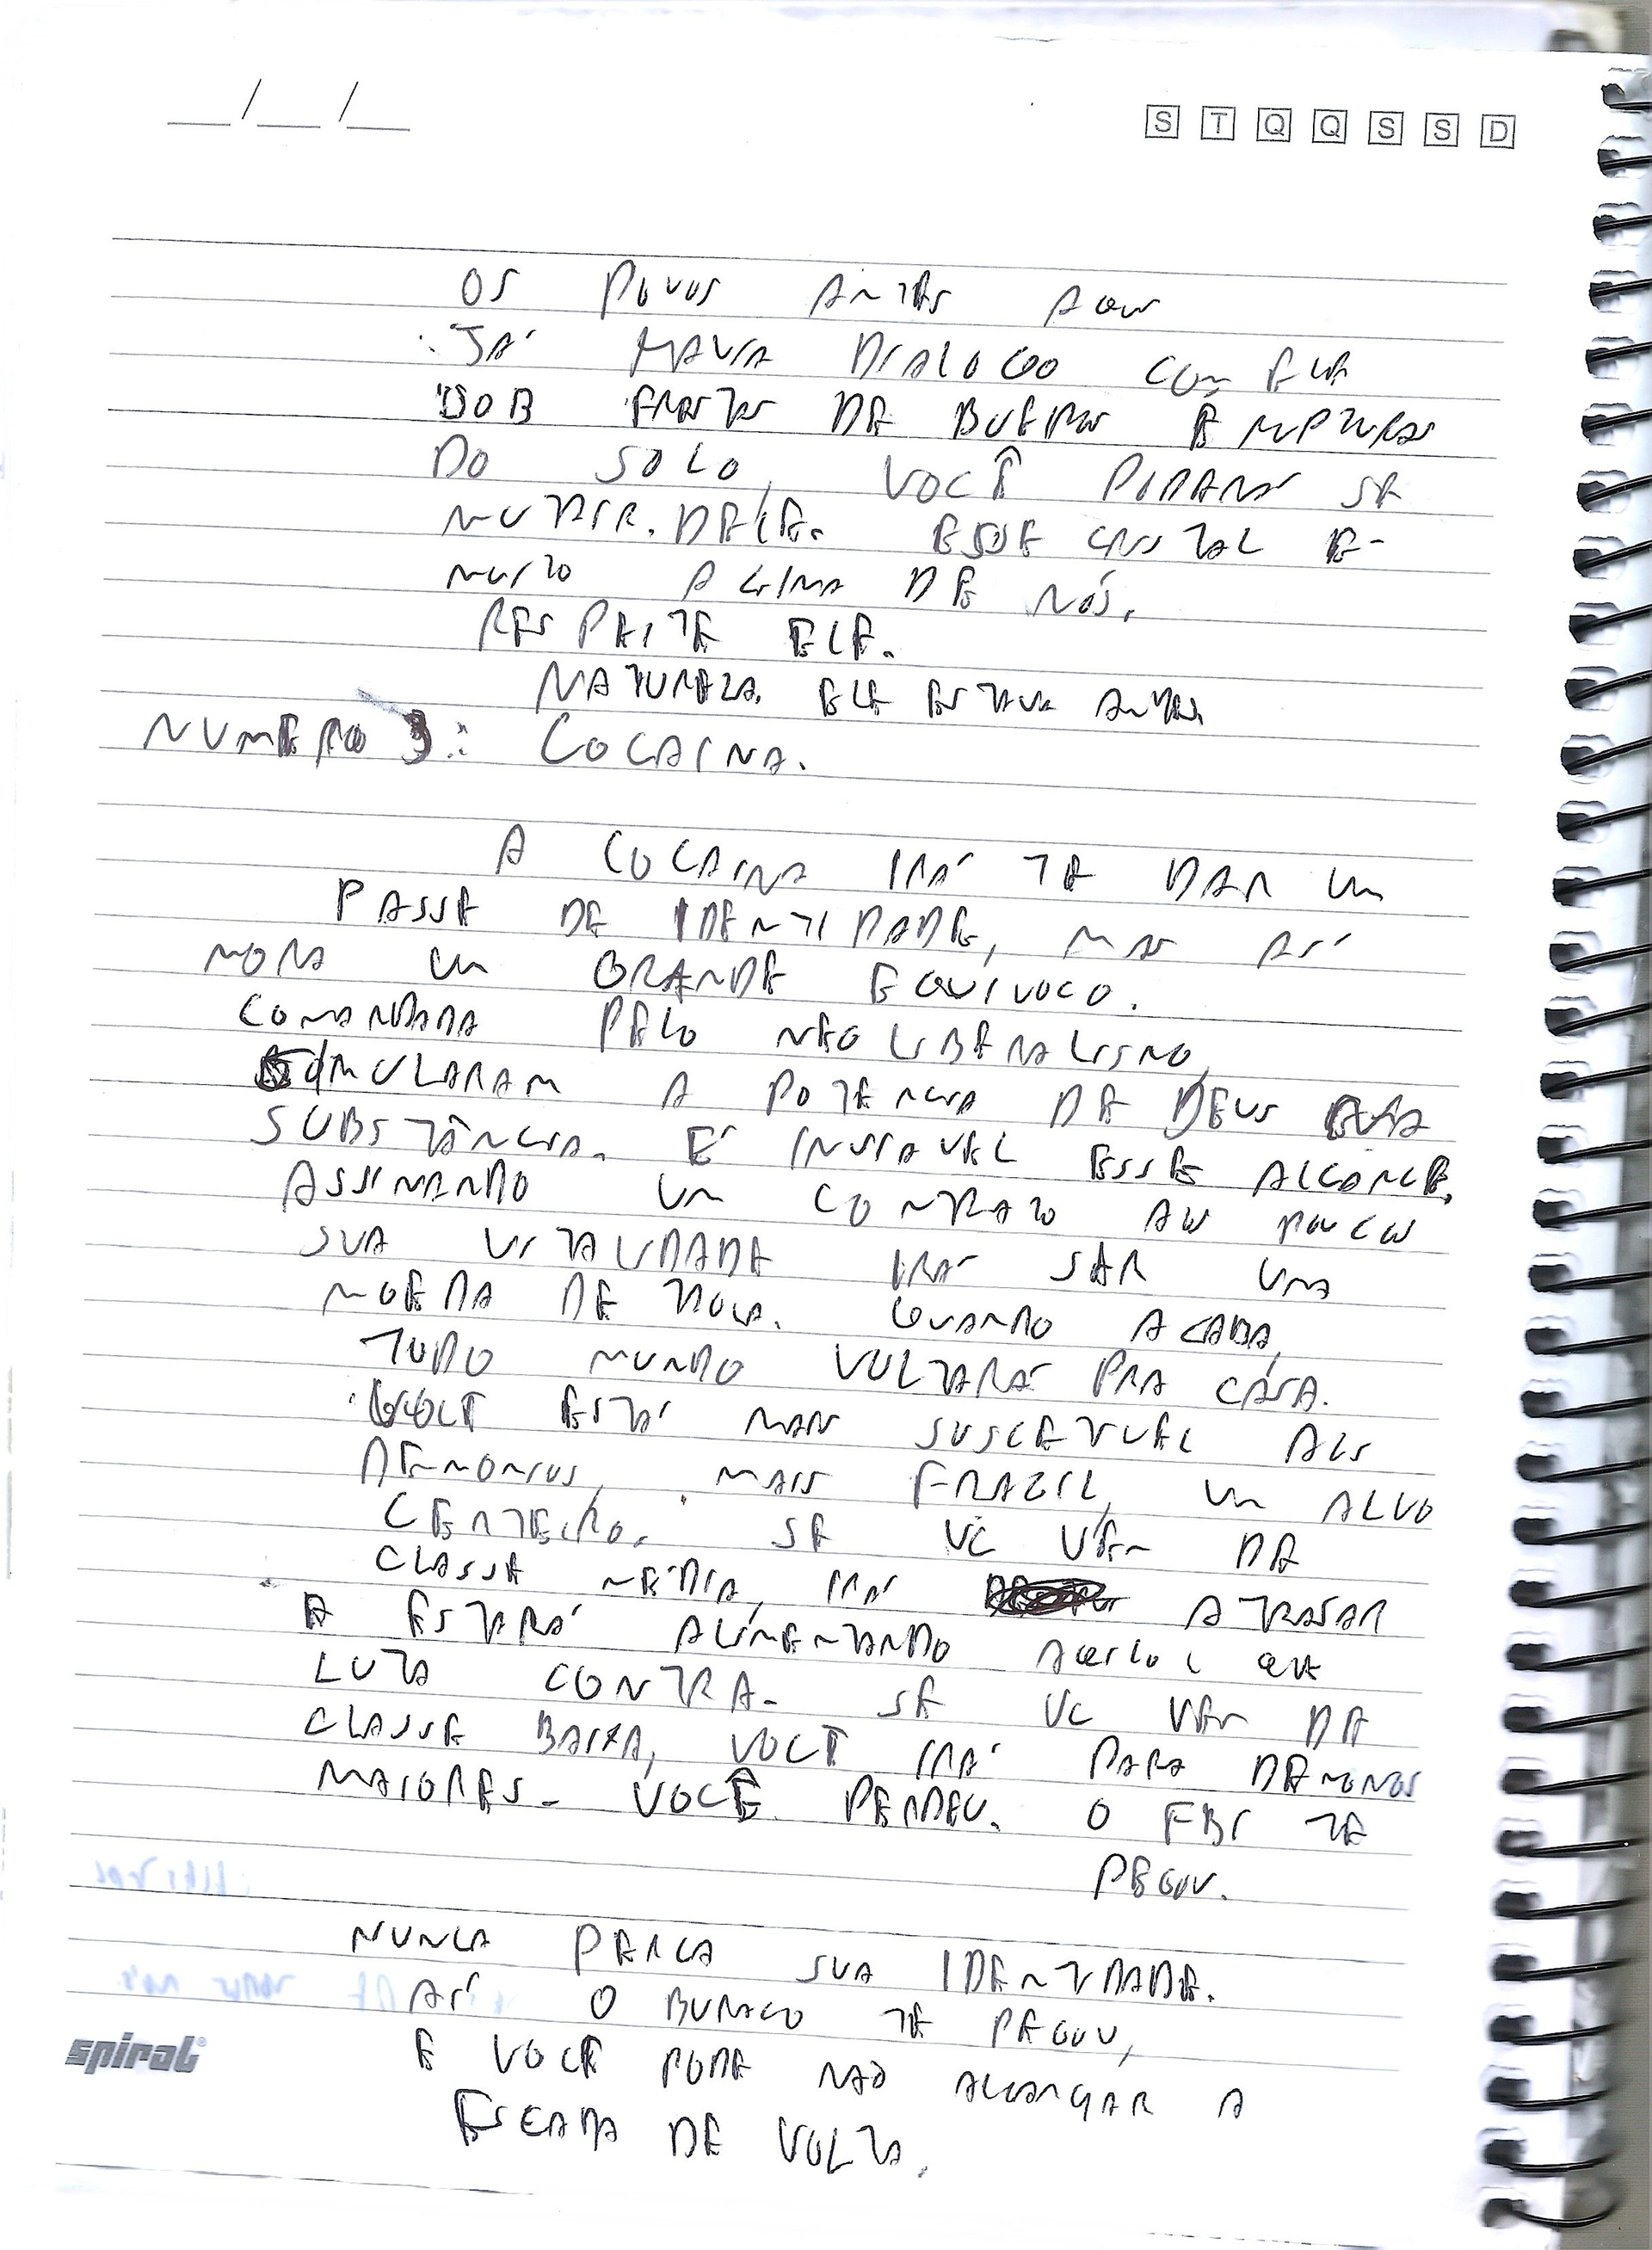 __/__/__
S T Q Q S S D
OS POVOS ANTES
JÁ HAVIA DIALOGO COM ELE
DE BUERAS E RUPTURAS
DO SOLO, VOCÊ PODERÁ SE
NUTRIR. DELE. ESSE CRISTAL E-
MUITO ACIMA DE NÓS.
RESPEITE ELE.
NATUREZA. ELE ESTAVA ANTES.
NUMERO 3: COCAINA.
A COCAINA IRÁ TE DAR UM
PASSE DE IDENTIDADE, MAS AÍ
MORA UM GRANDE EQUIVOCO.
COMANDADA PELO NEOLIBERALISMO,
SIMULARAM A POTENCIA DE DEUS
SUBSTÂNCIA. É INVIAVEL ESSE ALCANCE,
ASSINANDO UM CONTRATO AOS POUCOS
SUA VITALIDADE IRÁ SER UMA
MOEDA DE TROCA. QUANDO ACABA,
TODO MUNDO VOLTARÁ PRA CASA.
VOCÊ ESTÁ MAIS SUSCETIVEL AOS
DEMONIOS, MAIS FRAGIL, UM ALVO
CERTEIRO. SE VC VEM DA
CLASSE MÉDIA, IRÁ ATRASAR
E ESTARÁ ALIMENTANDO AQUILO QUE
LUTA CONTRA. SE VC VEM DA
CLASSE BAIXA, VOCÊ IRÁ PARA DEMONIOS
MAIORES. VOCÊ PERDEU. O FBI TE
PEGOU.
NUNCA PERCA SUA IDENTIDADE.
AÍ O BURACO TE PEGOU,
E VOCÊ PODE NÃO ALCANÇAR A
ESCADA DE VOLTA.
spiral®